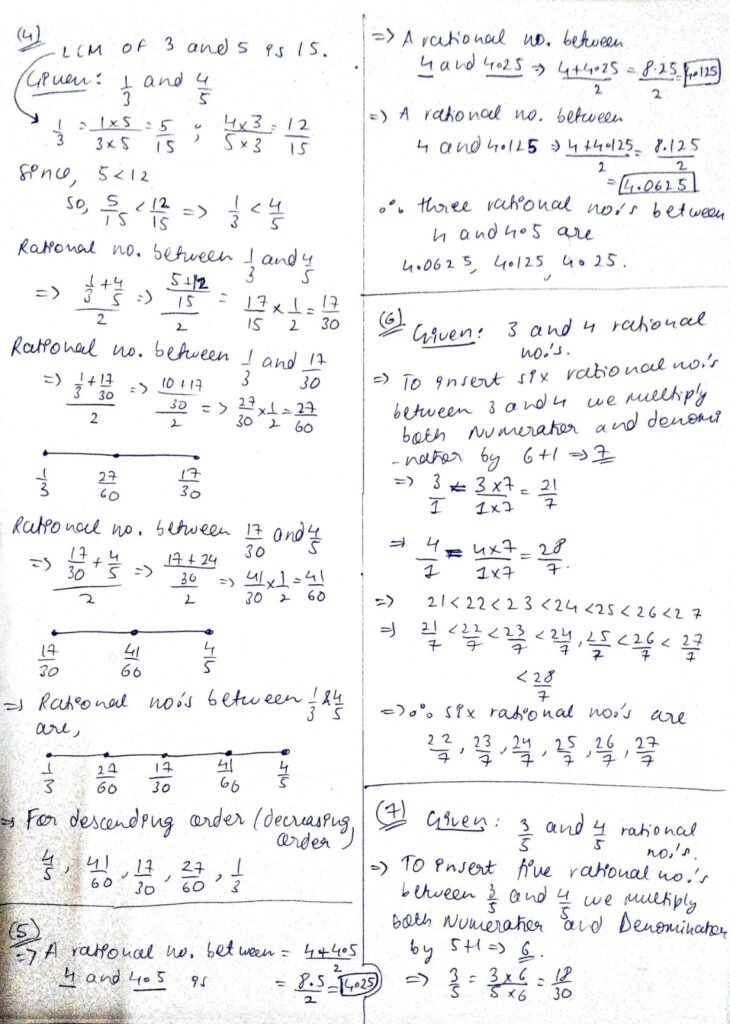 (4)
LCM of 3 and 5 is 15.
Given: 1/3 and 4/5
1/3 = 1×5/3×5 = 5/15 ; 4×3/5×3 = 12/15
Since, 5<12
So, 5/15 < 12/15 => 1/3 < 4/5
Rational no. between 1/3 and 4/5
=> (1/3 + 4/5)/2 => ((5+12)/15)/2 = 17/15 × 1/2 = 17/30
Rational no. between 1/3 and 17/30
=> (1/3 + 17/30)/2 => ((10+17)/30)/2 => 27/30 × 1/2 = 27/60
1/3 27/60 17/30
Rational no. between 17/30 and 4/5
=> (17/30 + 4/5)/2 => ((17+24)/30)/2 => 41/30 × 1/2 = 41/60
17/30 41/60 4/5
=> Rational no.s between 1/3 & 4/5
are,
1/3 27/60 17/30 41/60 4/5
=> For descending order (decreasing
order)
4/5, 41/60, 17/30, 27/60, 1/3
(5)
=> A rational no. between = 4+4.5/2
4 and 4.5 is = 8.5/2 = 4.25
=> A rational no. between
4 and 4.25 => 4+4.25/2 = 8.25/2 = 4.125
=> A rational no. between
4 and 4.125 => 4+4.125/2 = 8.125/2
= 4.0625
∴ three rational no.'s between
4 and 4.5 are
4.0625, 4.125, 4.25.
(6) Given: 3 and 4 rational
no.'s.
=> To insert six rational no.'s
between 3 and 4 we multiply
both Numerator and denomi
-nator by 6+1 => 7
=> 3/1 = 3×7/1×7 = 21/7
=> 4/1 = 4×7/1×7 = 28/7.
=> 21<22<23<24<25<26<27
=> 21/7 < 22/7 < 23/7 < 24/7, 25/7 < 26/7 < 27/7
< 28/7
=> ∴ six rational no.'s are
22/7, 23/7, 24/7, 25/7, 26/7, 27/7
(7) Given: 3/5 and 4/5 rational
no.'s.
=> To insert five rational no.'s
between 3/5 and 4/5 we multiply
both Numerator and Denominator
by 5+1 => 6.
=> 3/5 = 3×6/5×6 = 18/30